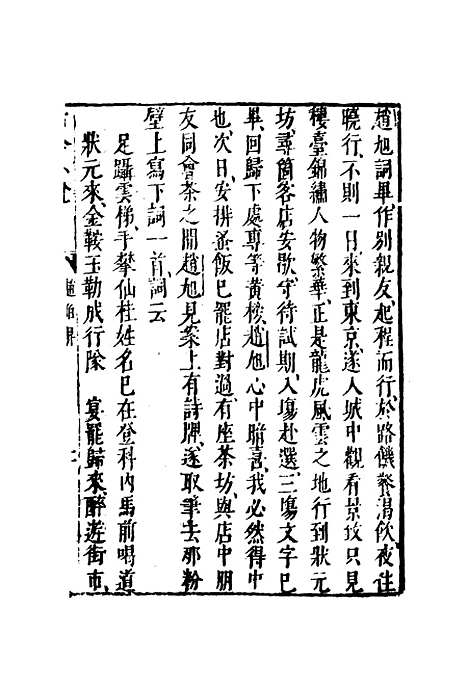 趙旭詞畢作別親友起程而行於路饑餐渴飲夜住
曉行不則一日來到東京遂入城中觀看景致只見
樓臺錦繡人物繁華正是龍虎風雲之地行到狀元
坊尋箇客店安歇守待試期入塲赴選三塲文字已
畢回歸下處專等黃榜趙旭心中暗喜我必然得中
也次日安排蚤飯已罷店對過有座茶坊與店中朋
友同會茶之間趙旭見案上有詩牌遂取筆去那粉
壁上寫下詞一首詞云
足躡雲梯手攀仙桂姓名已在登科內馬前喝道
狀元來金鞍玉勒成行隊　宴罷歸來醉遊街市